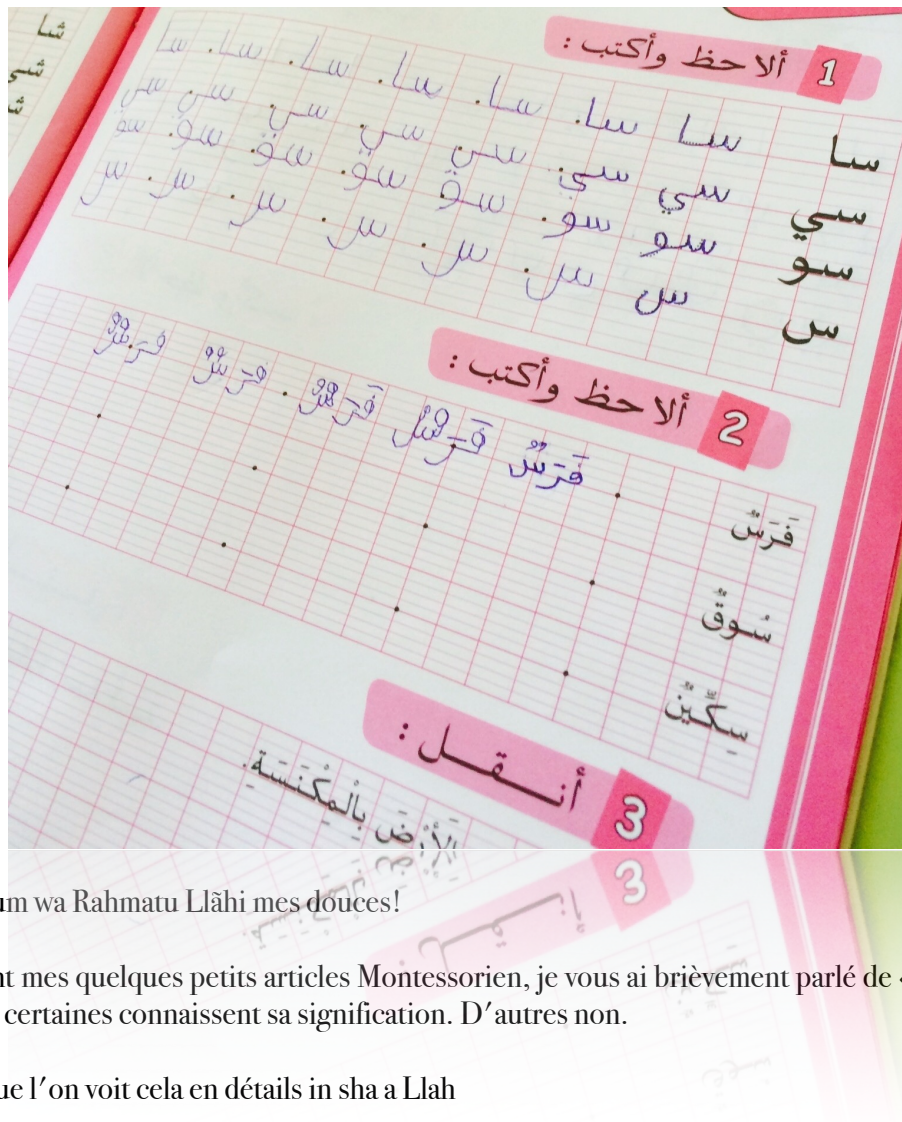 شا
1 ألاحظ وأكتب :
سا سا سا. سا. سا. سا. سا. سا
سي سي سي. سي سي. سي سي سي
سو سو سو. سو سو. سو. سو. سو
س س س. س. س. س. س. س
2 ألاحظ وأكتب :
فَرَسٌ فَرَسٌ فَرَسٌ فَرَسٌ . فَرَسٌ فَرَسٌ
سُوقٌ
سِكِّينٌ
3 أنـقـل :
الْأَرْضَ بِالْمِكْنَسَةِ.
wa Rahmatu Llãhi mes douces!
mes quelques petits articles Montessorien, je vous ai brièvement parlé de
certaines connaissent sa signification. D'autres non.
l'on voit cela en détails in sha a Llah